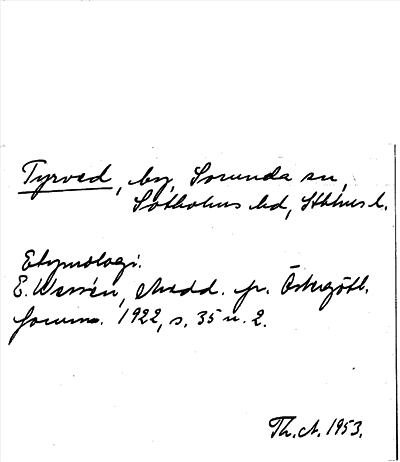 Tyrved, by, Sorunda sn,
Sotholms hd, Sthlms l.
Etymologi.
E. Wessén, Medd. fr. Östergötl.
fornm. 1922, s. 35 n. 2.
Th. A. 1953.